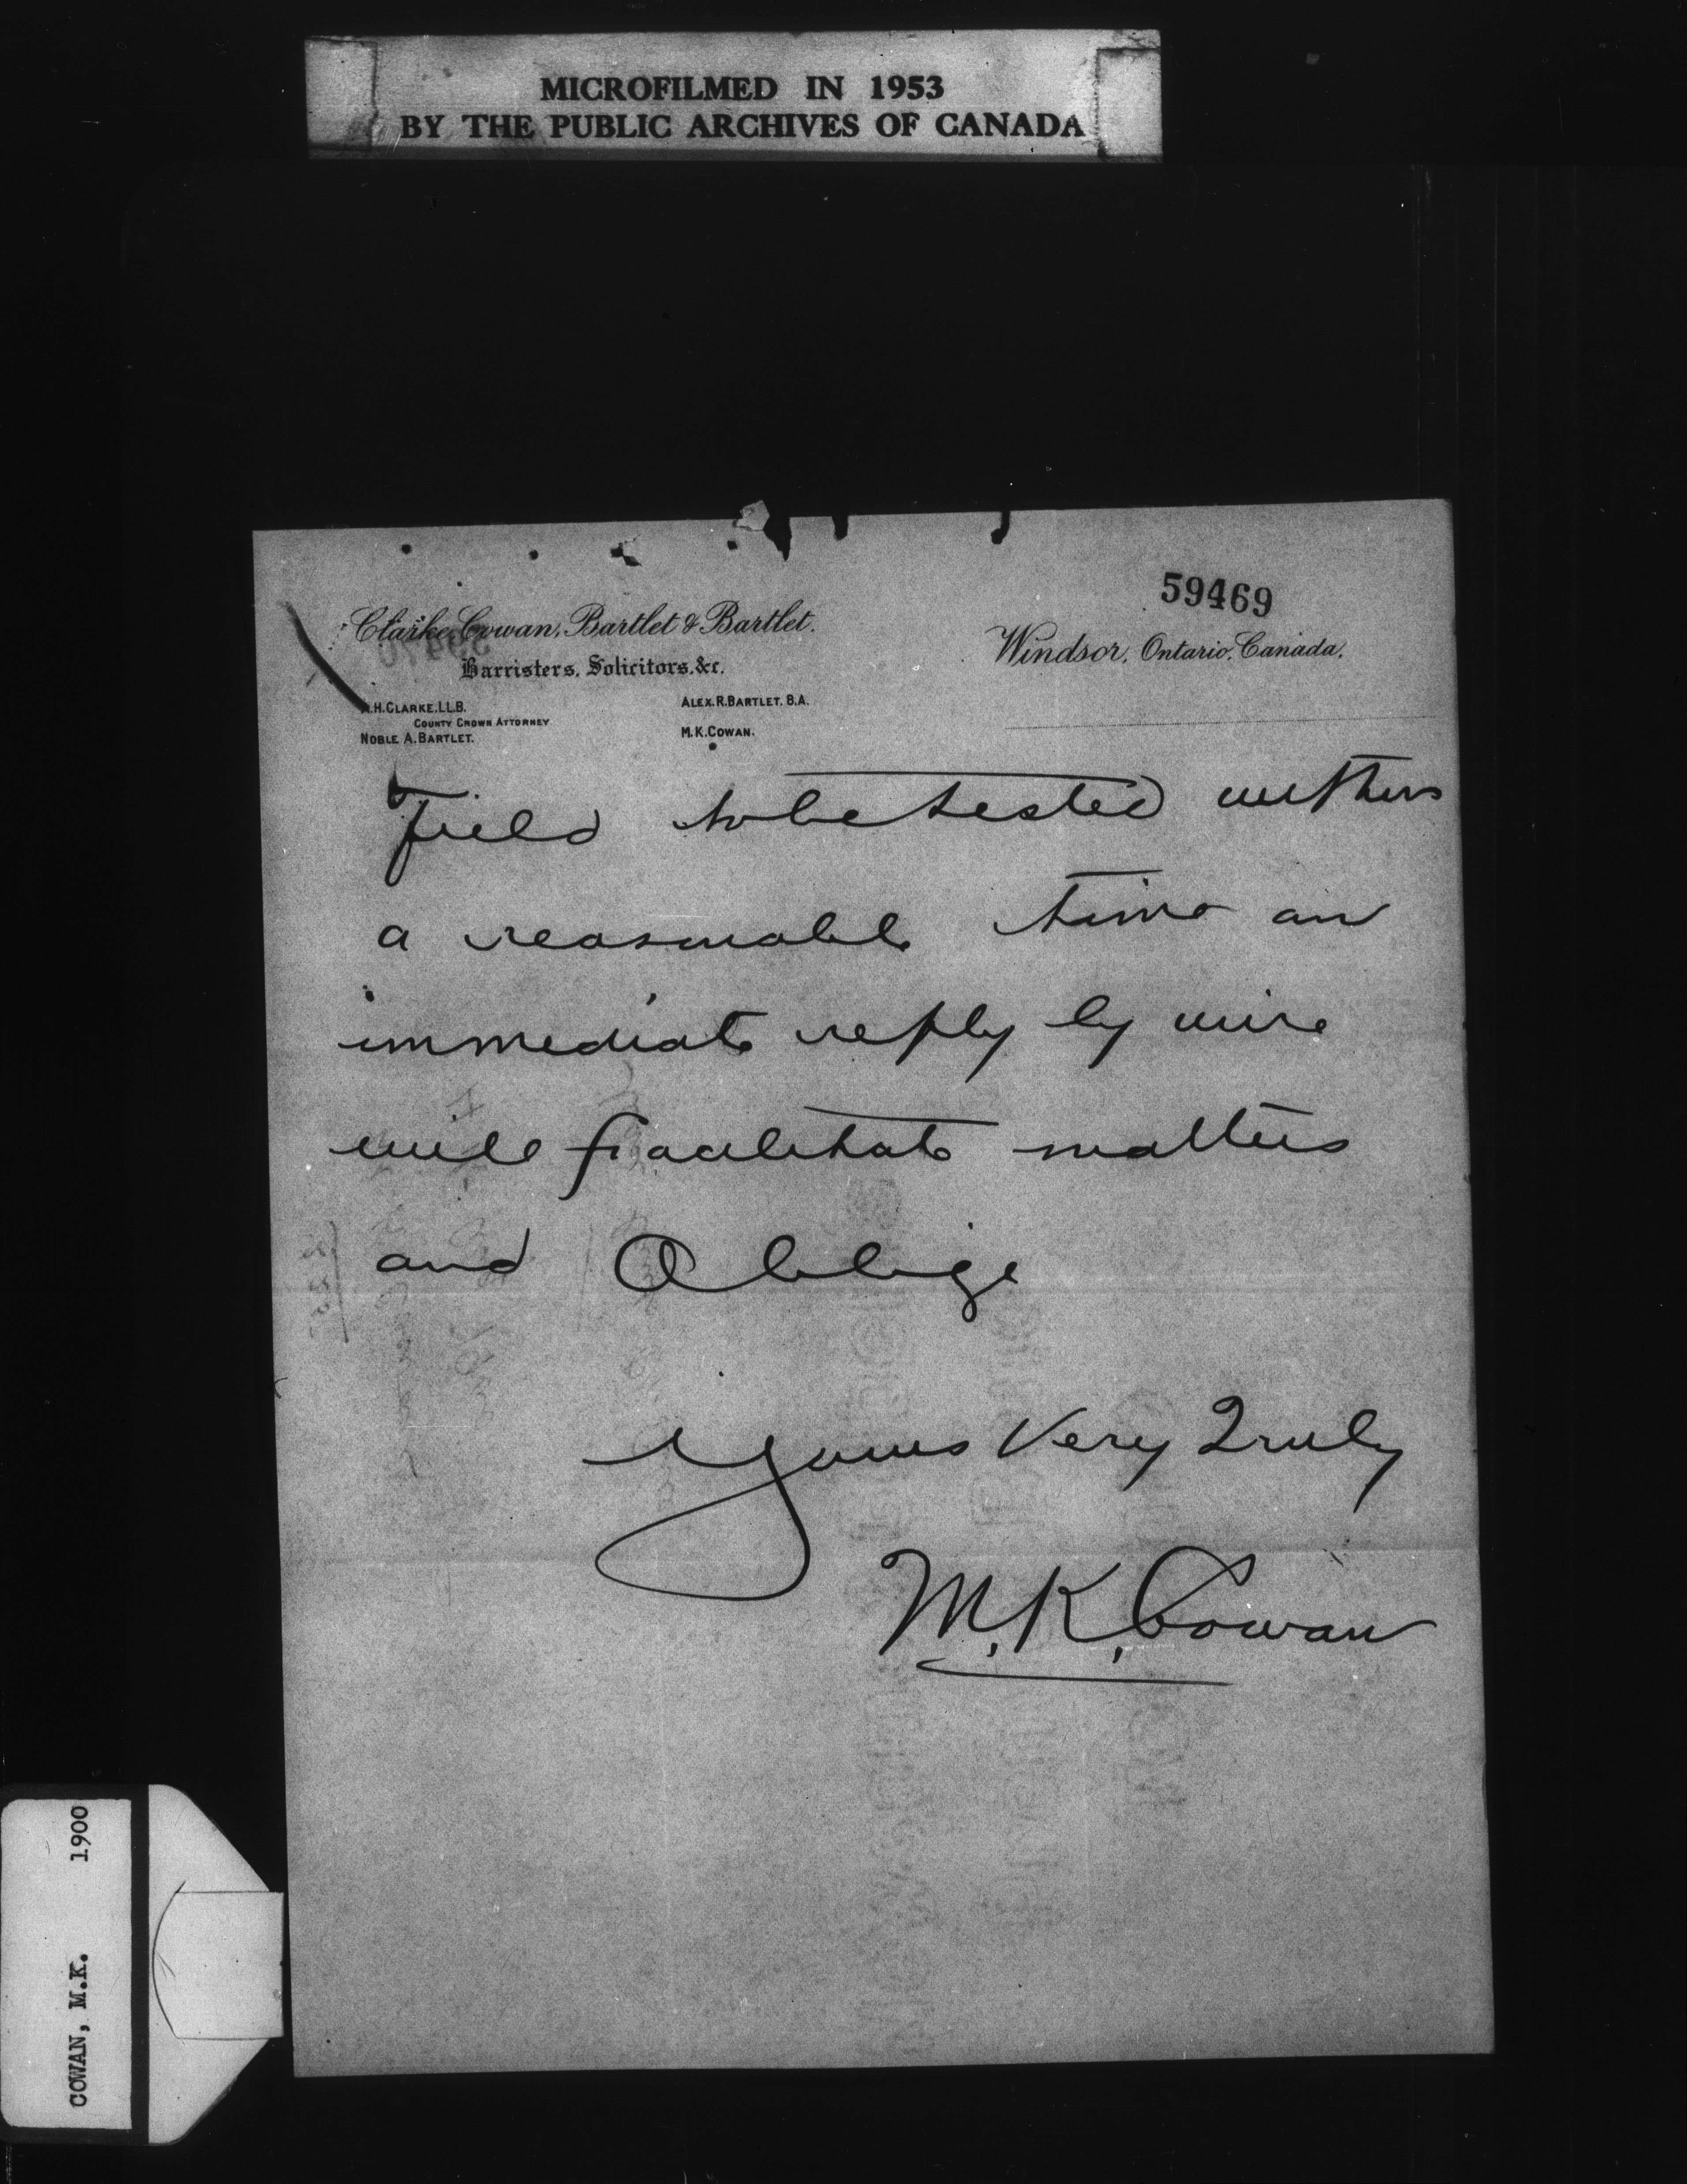 MICROFILMED IN 1953
BY THE PUBLIC ARCHIVES OF CANADA
59469
Clarke, Cowan, Bartlet & Bartlet.
Barristers, Solicitors, &c.
Windsor, Ontario, Canada.
A.H. CLARKE, LL.B.
COUNTY CROWN ATTORNEY
NOBLE A. BARTLET.
ALEX. R. BARTLET, B.A.
M. K. COWAN.
Field to be tested within
a reasonable time an
immediate reply by wire
will fiacilitate matters
and Oblige
Yours Very Truly
M. K. Cowan
COWAN, M.K. 1900